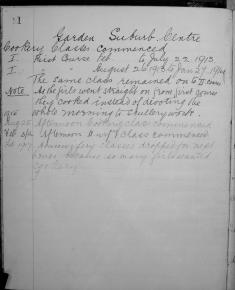 1
Garden Suburb Centre
Cookery Classes commenced
I. First Course Feb. to July 22. 1913
I. " " August 26 1913 to Jan 27. 1914
The same class remained on to II course
Note As the girls went straight on from first course
they cooked instead of devoting the
whole morning to scullery work.
Afternoon Cookery class commenced
Afternoon class commenced
classes dropped for next
because so many girls wanted
cookery